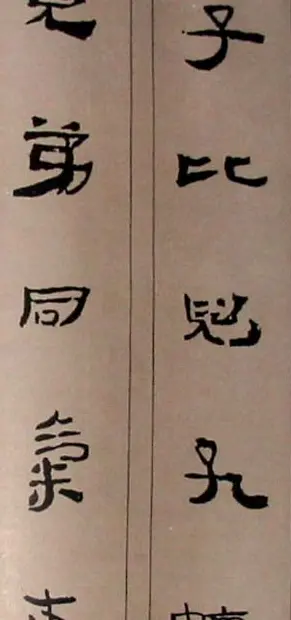 子比兒孔
兄弟同氣